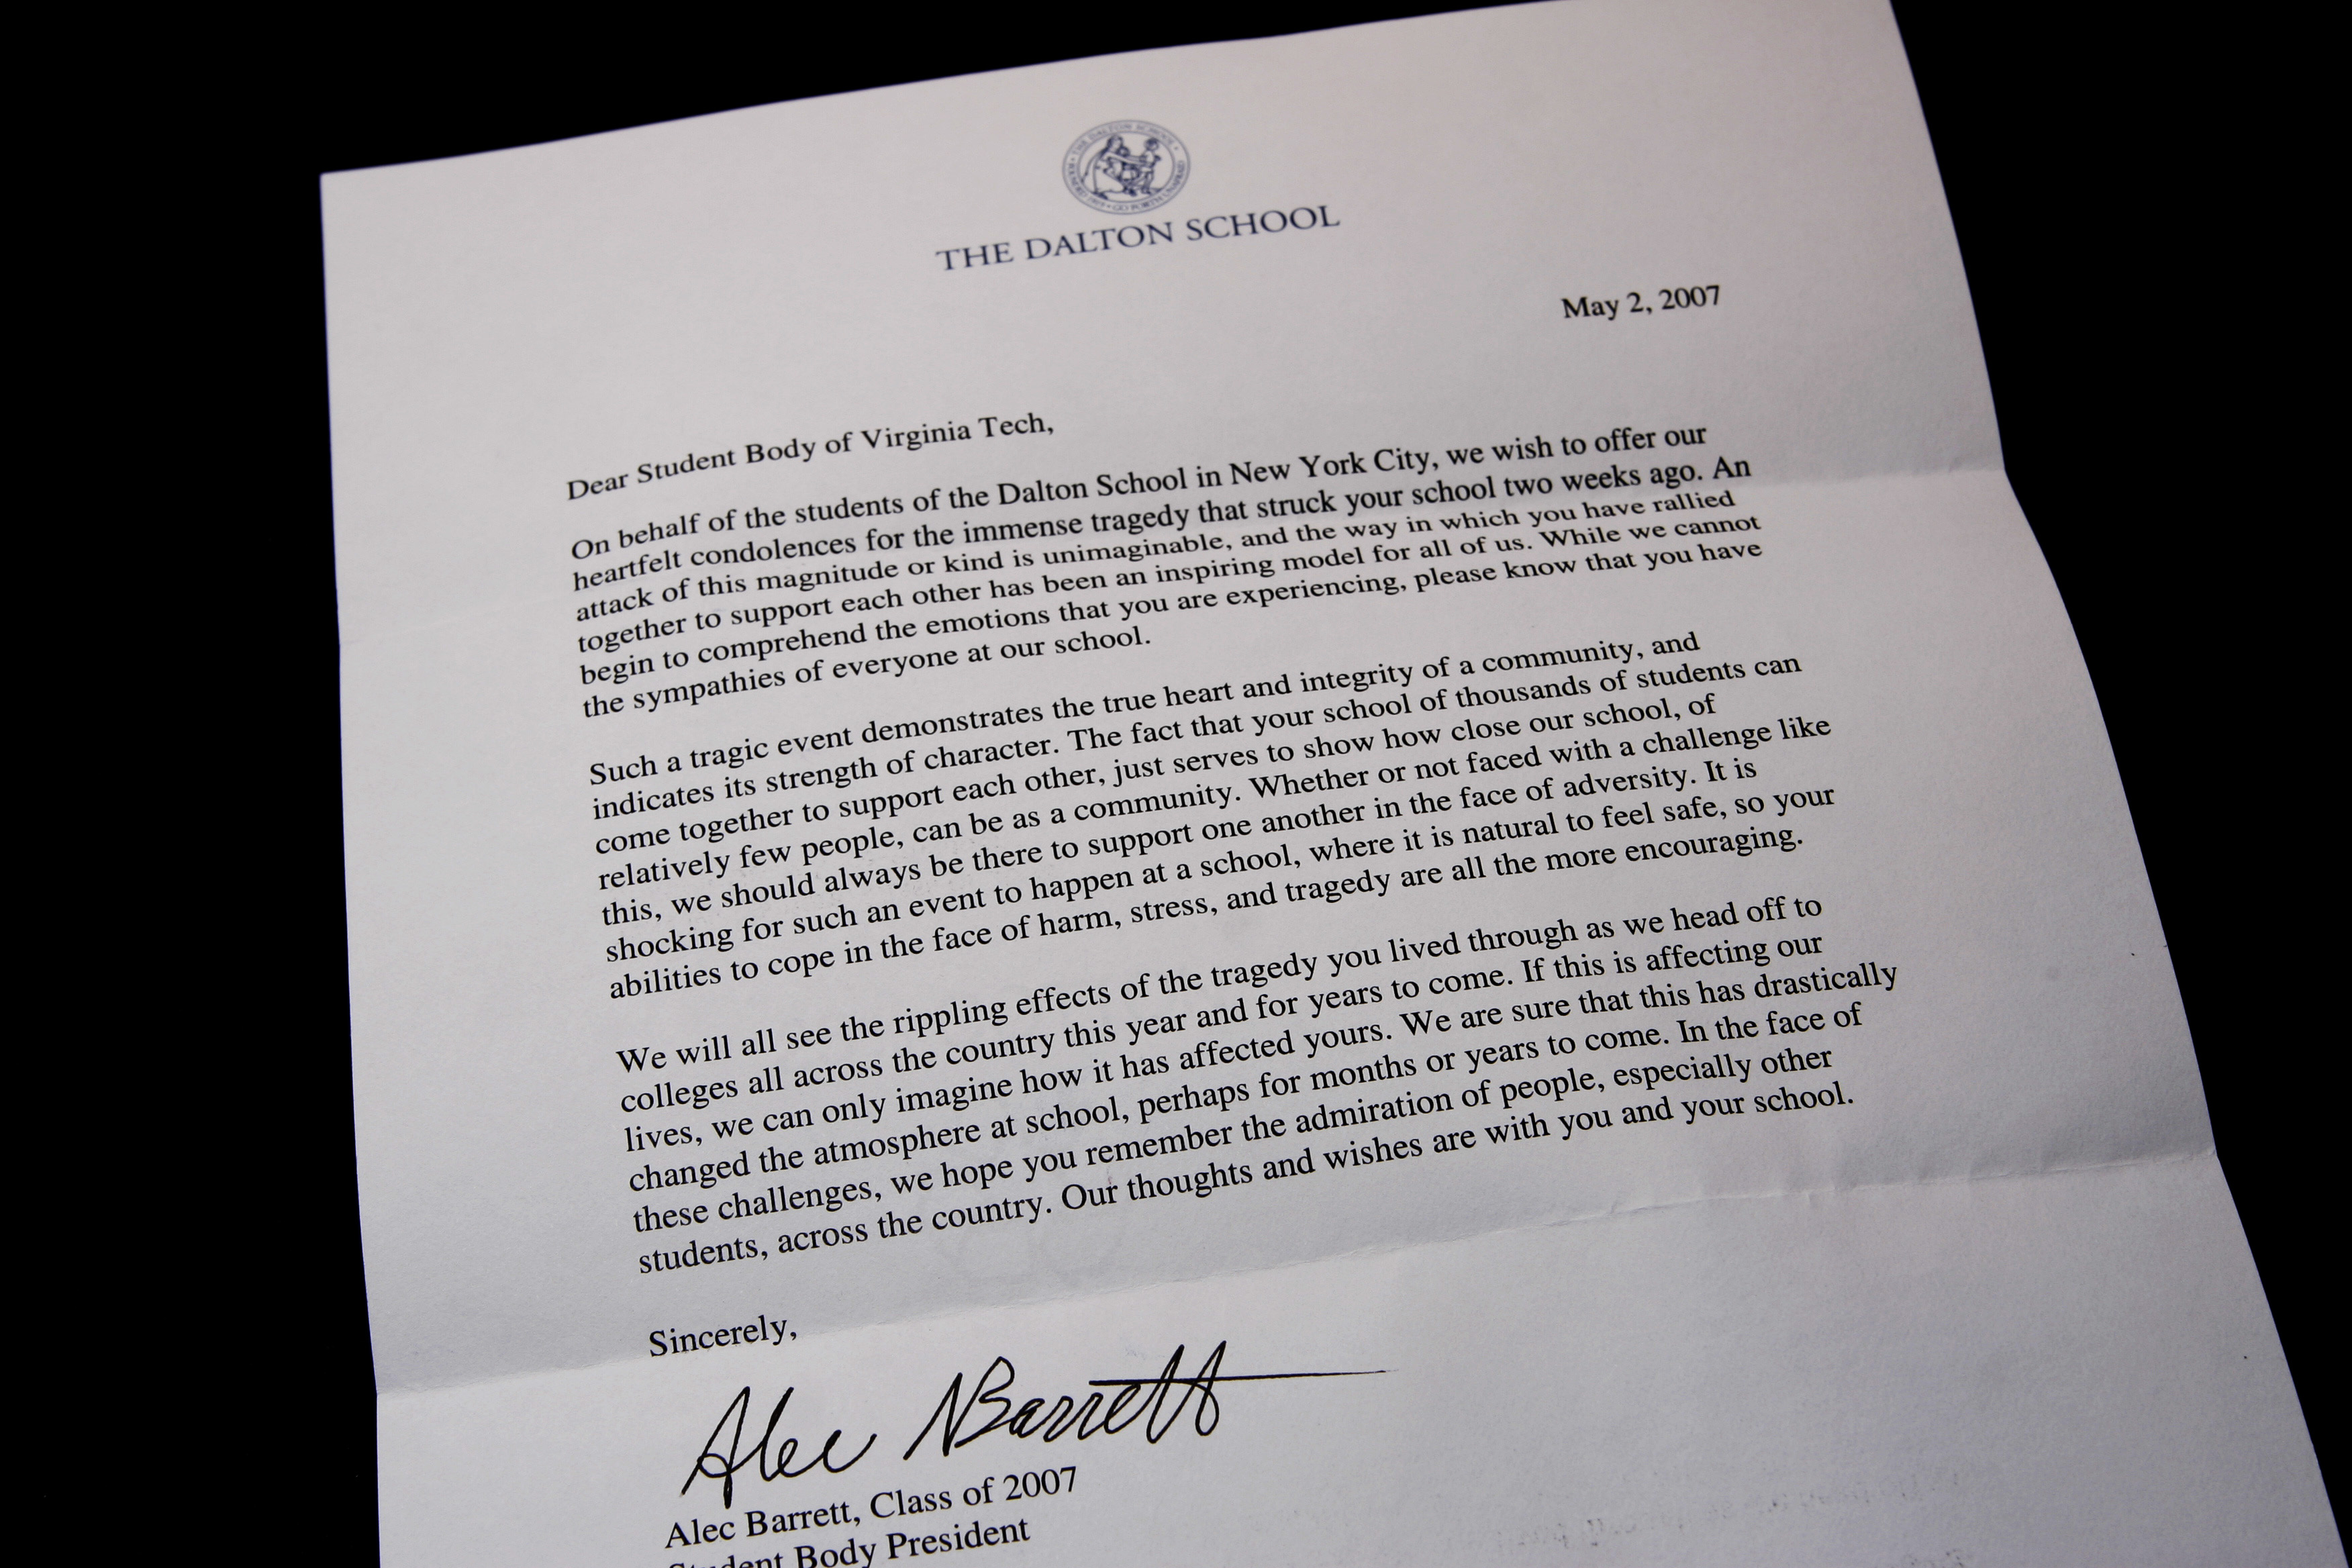 THE DALTON SCHOOL
May 2, 2007
Dear Student Body of Virginia Tech,
On behalf of the students of the Dalton School in New York City, we wish to offer our
heartfelt condolences for the immense tragedy that struck your school two weeks ago. An
attack of this magnitude or kind is unimaginable, and the way in which you have rallied
together to support each other has been an inspiring model for all of us. While we cannot
begin to comprehend the emotions that you are experiencing, please know that you have
the sympathies of everyone at our school.
Such a tragic event demonstrates the true heart and integrity of a community, and
indicates its strength of character. The fact that your school of thousands of students can
come together to support each other, just serves to show how close our school, of
relatively few people, can be as a community. Whether or not faced with a challenge like
this, we should always be there to support one another in the face of adversity. It is
shocking for such an event to happen at a school, where it is natural to feel safe, so your
abilities to cope in the face of harm, stress, and tragedy are all the more encouraging.
We will all see the rippling effects of the tragedy you lived through as we head off to
colleges all across the country this year and for years to come. If this is affecting our
lives, we can only imagine how it has affected yours. We are sure that this has drastically
changed the atmosphere at school, perhaps for months or years to come. In the face of
these challenges, we hope you remember the admiration of people, especially other
students, across the country. Our thoughts and wishes are with you and your school.
Sincerely,
Alec Barrett
Alec Barrett, Class of 2007
Student Body President